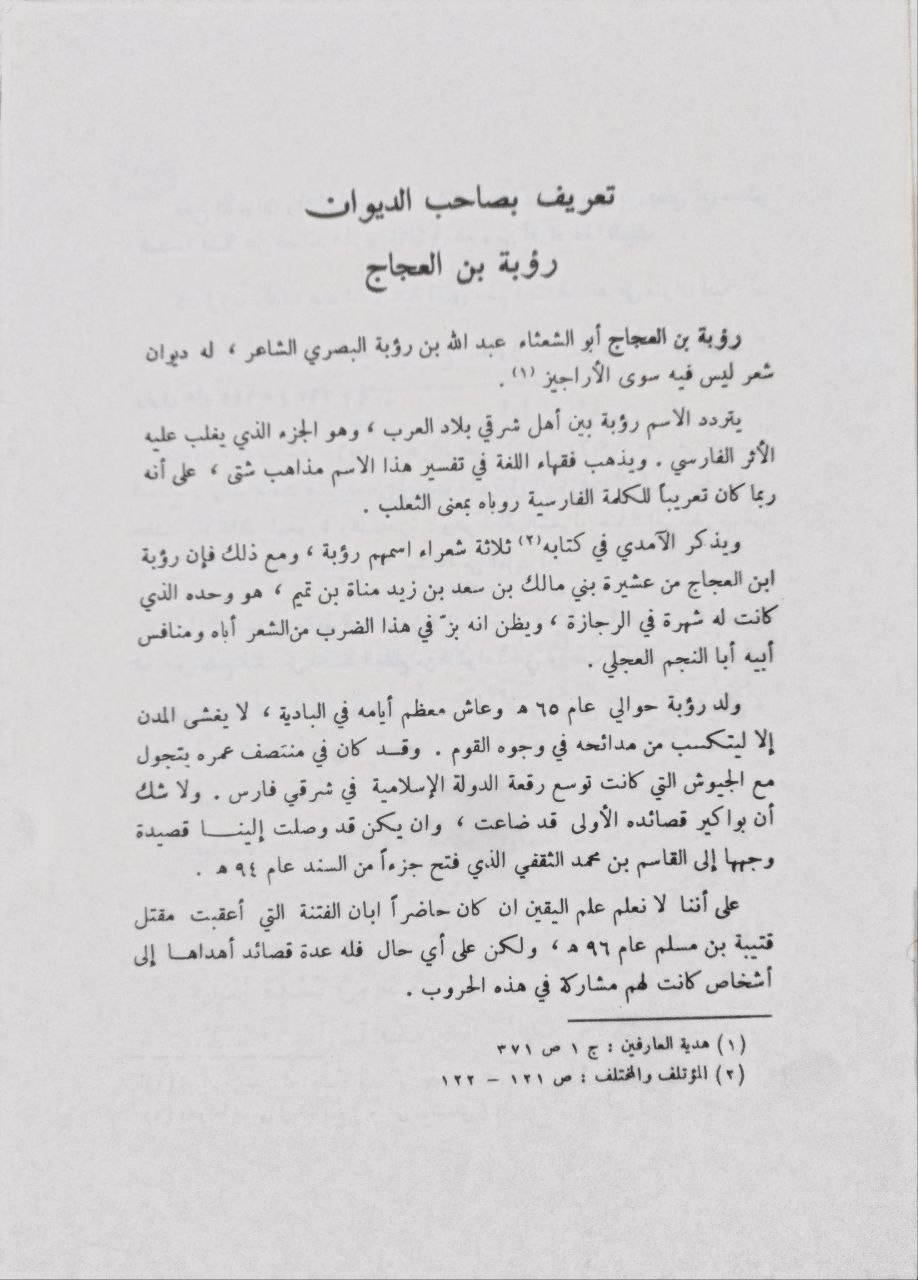 تعريف بصاحب الديوان
رؤبة بن العجاج
رؤبة بن العجاج أبو الشعثاء عبد الله بن رؤبة البصري الشاعر ، له ديوان
شعر ليس فيه سوى الأراجيز (١) .
يتردد الاسم رؤبة بين أهل شرقي بلاد العرب ، وهو الجزء الذي يغلب عليه
الأثر الفارسي . ويذهب فقهاء اللغة في تفسير هذا الاسم مذاهب شتى ، على أنه
ربما كان تعريباً للكلمة الفارسية روباه بمعنى الثعلب .
ويذكر الآمدي في كتابه(٢) ثلاثة شعراء اسمهم رؤبة ، ومع ذلك فإن رؤبة
ابن العجاج من عشيرة بني مالك بن سعد بن زيد مناة بن تميم ، هو وحده الذي
كانت له شهرة في الرجازة ، ويظن انه بزّ في هذا الضرب من الشعر أباه ومنافس
أبيه أبا النجم العجلي .
ولد رؤبة حوالي عام ٦٥ ه وعاش معظم أيامه في البادية ، لا يغشى المدن
إلا ليتكسب من مدائحه في وجوه القوم . وقد كان في منتصف عمره يتجول
مع الجيوش التي كانت توسع رقعة الدولة الإسلامية في شرقي فارس . ولا شك
أن بواكير قصائده الأولى قد ضاعت ، وان يكن قد وصلت إلينا قصيدة
وجهها إلى القاسم بن محمد الثقفي الذي فتح جزءاً من السند عام ٩٤ ه .
على أننا لا نعلم علم اليقين ان كان حاضراً ابان الفتنة التي أعقبت مقتل
قتيبة بن مسلم عام ٩٦ ه ، ولكن على أي حال فله عدة قصائد أهداها إلى
أشخاص كانت لهم مشاركة في هذه الحروب .
(١) هدية العارفين : ج ١ ص ٣٧١
(٢) المؤتلف والمختلف : ص ١٢١ – ١٢٢